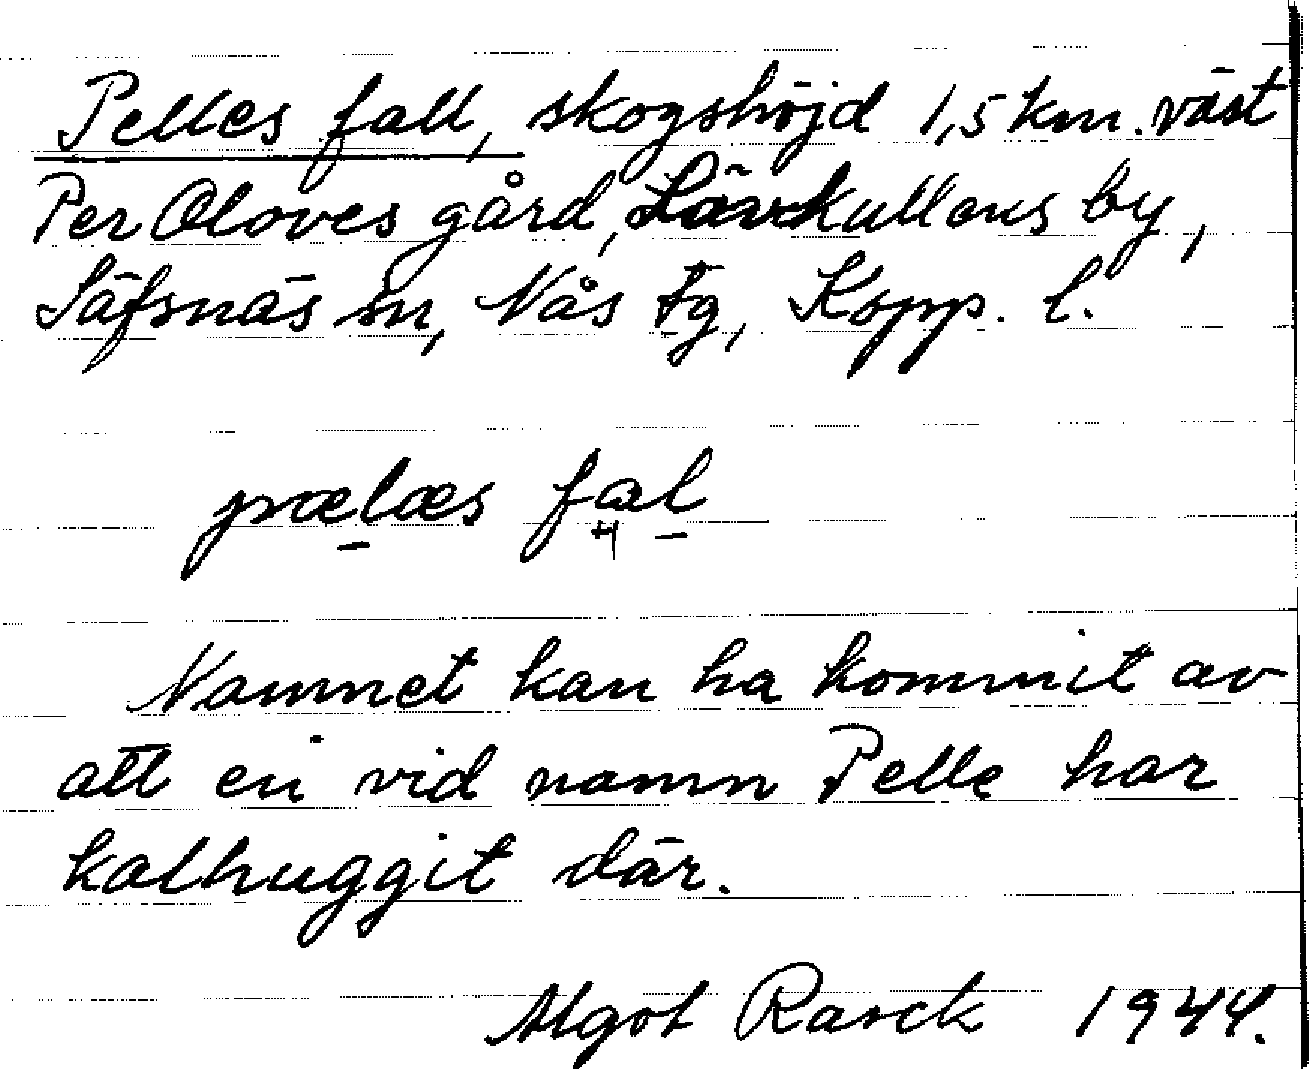 Pelles fall, skogshöjd 1,5 km. väst
Per Oloves gård, Lövkullens by,
Säfsnäs sn, Nås tg, Kopp. l.
pælæs fal
Namnet kan ha kommit av
att en vid namn Pelle har
kalhuggit där.
Algot Rasck 1944.